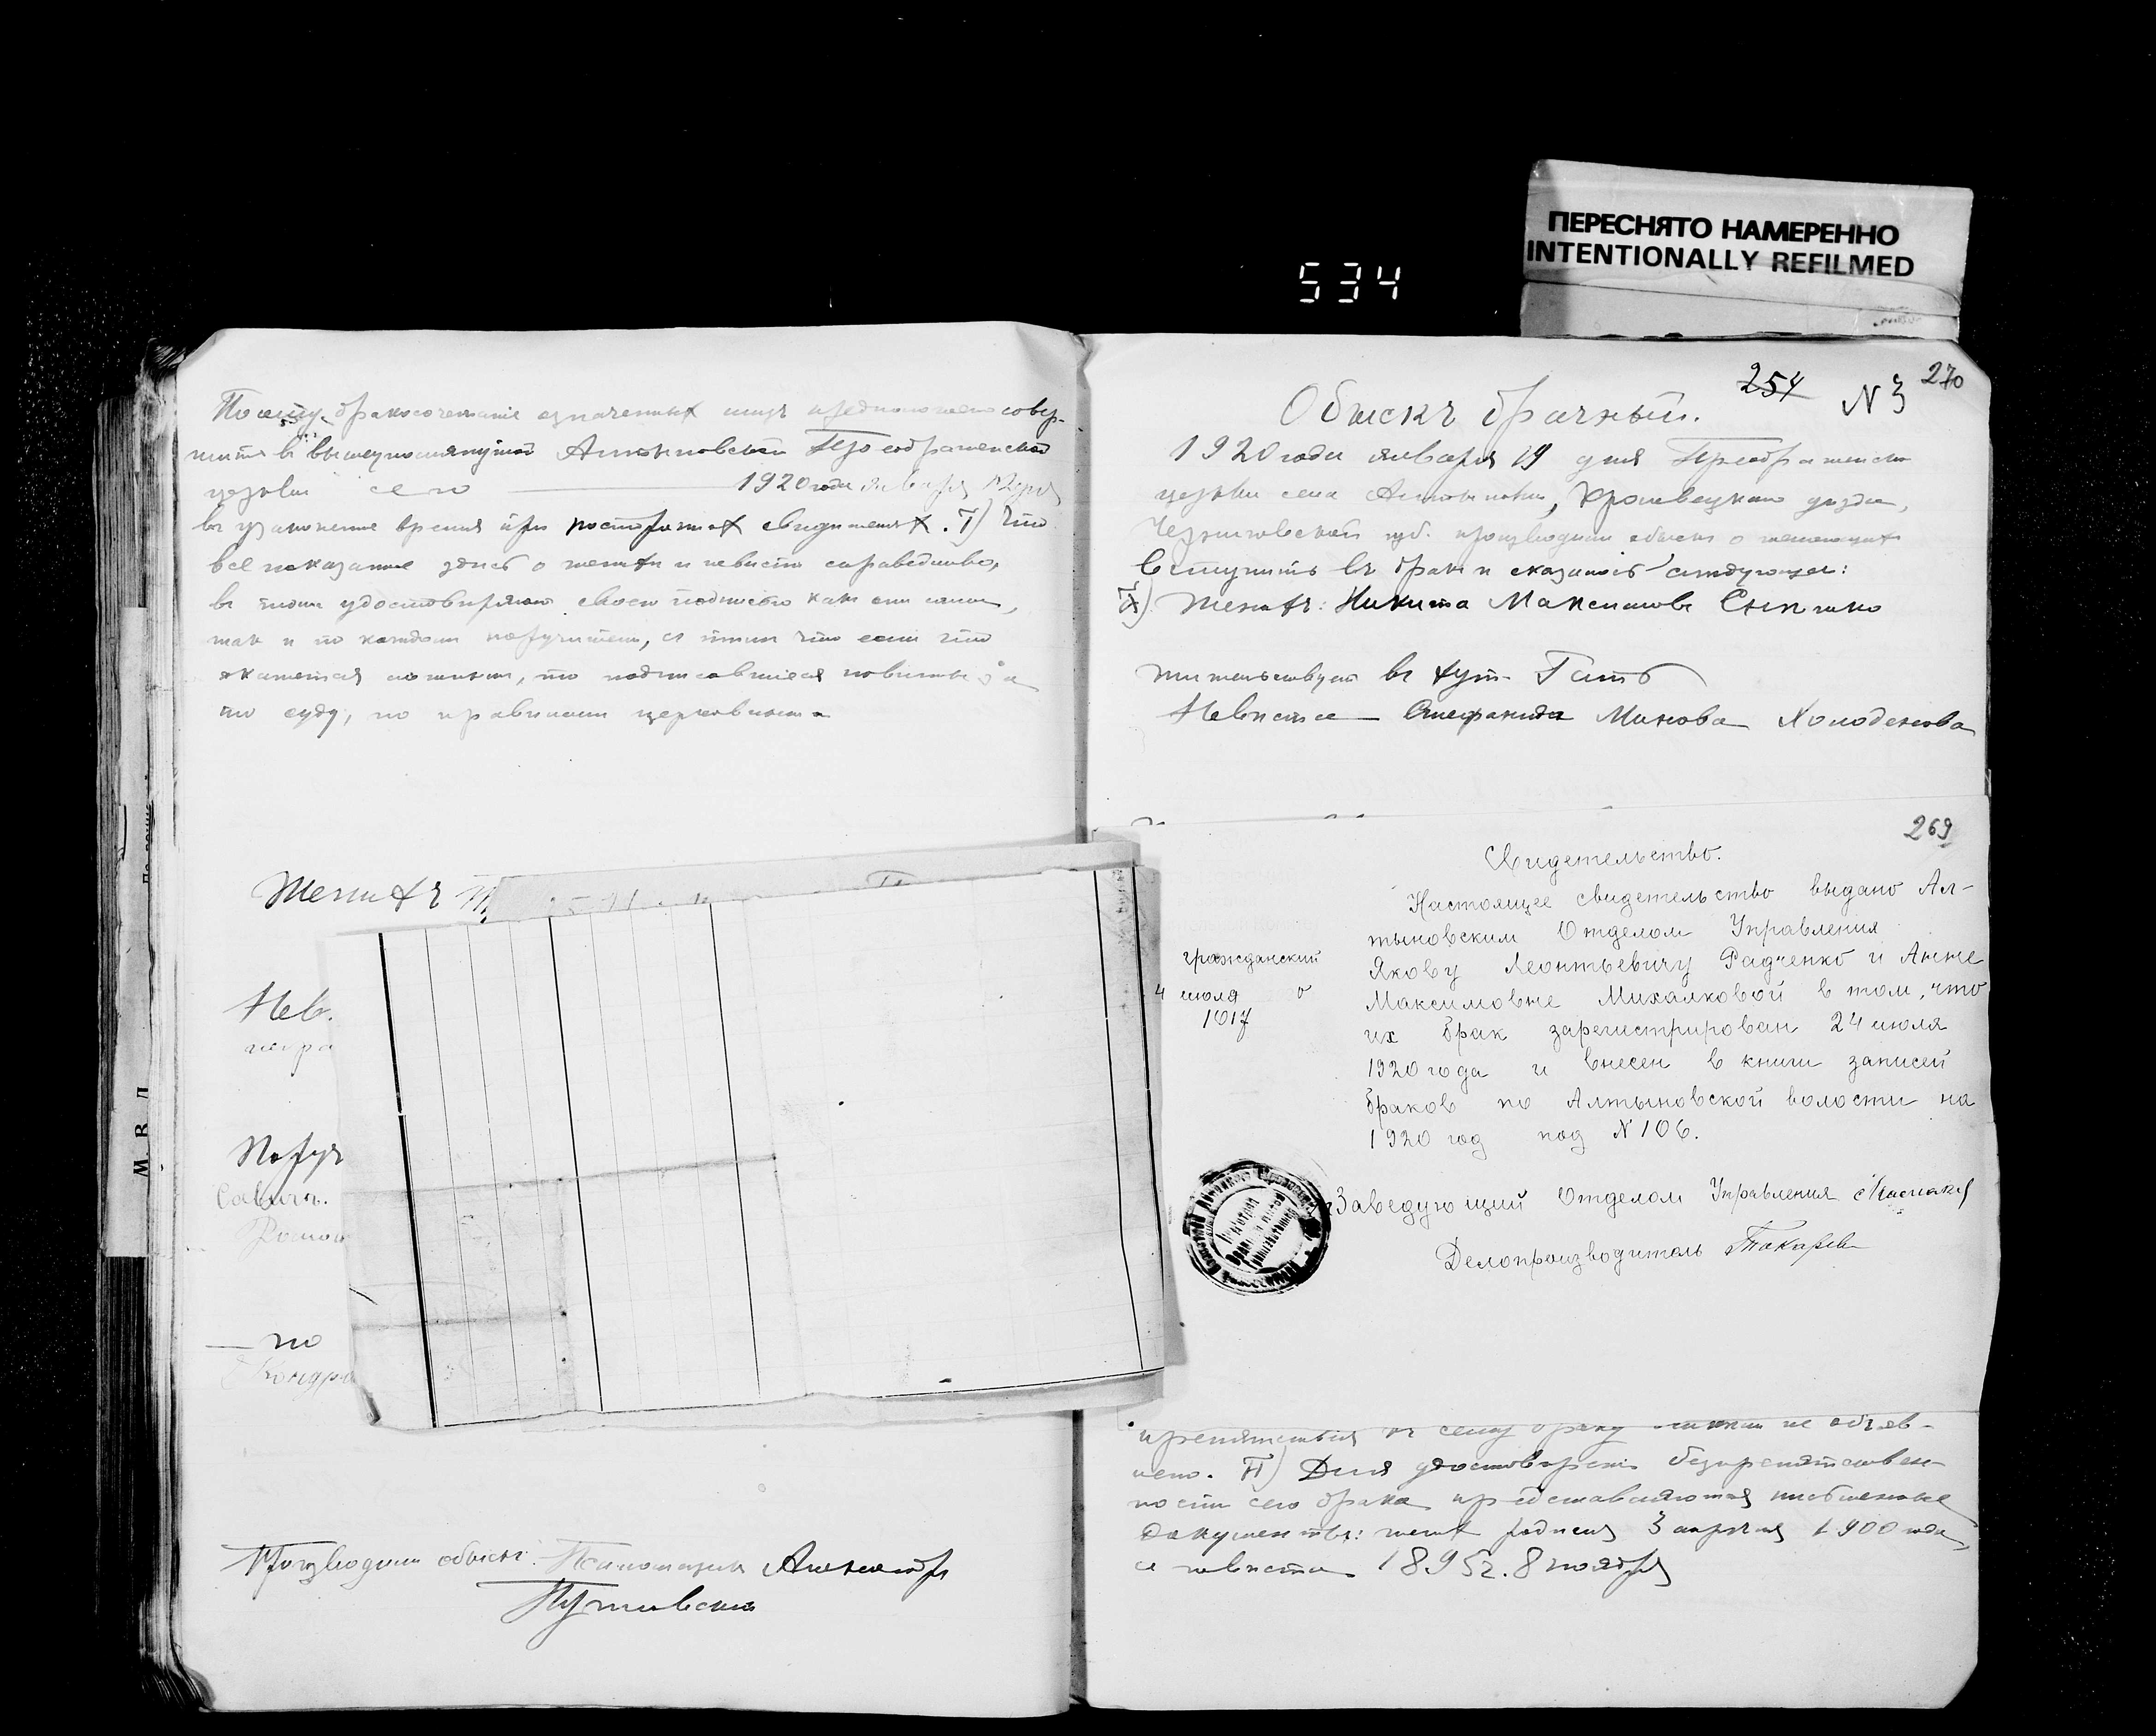 ПЕРЕСНЯТО НАМЕРЕННО
INTENTIONALLY REFILMED
534
Посему бракосочетаніе означенныхъ лицъ предположено совер-
шить въ вышеупомянутой Алтыновской Преображенской
церкви село 1920 года января дня
въ узаконенное время при постороннихъ свидѣтеляхъ. 7) Что
все показанное здѣсь о женихѣ и невѣстѣ справедливо,
въ томъ удостовѣряютъ своею подписью какъ они сами,
такъ и по каждомъ поручители, съ тѣмъ что если что
окажется ложнымъ, то подписавшіеся повинны за
то суду, по правиламъ церковнымъ
Женихъ
Нев.
негра
Поруч
Саввич.
Роман
по
Кондра
Производилъ обыскъ: Александръ
Путивскій
254 N 3 270
Обыскъ брачный.
1920 года января 19 дня Преображенской
церкви села Алтыновки, Кролевецкаго уѣзда,
Черниговской губ. производили обыскъ о желающихъ
вступить въ бракъ и оказалось слѣдующее:
1) Женихъ: Никита Максимовъ
жительствуетъ въ хут. Гать
Невѣста Стефанида Минова Холоденкова
269
Свидетельство.
Настоящее свидетельство выдано Ал-
тыновским Отделом Управления
гражданский
Якову Леонтьевичу Радченко и Анне
4 июля о
Максимовне Михалковой в том, что
1917
их брак зарегистрирован 24 июля
1920 года и внесен в книги записей
браков по Алтыновской волости на
1920 год под N 106.
Заведующий Отделом Управления
Делопроизводитель Токарев
препятствія къ сему браку никѣмъ не объяв-
лено. 6) Для удостовѣренія безпрепятствен-
ности сего брака представляются письменные
документы: жених родился 3 апрѣля 1900 года,
а невѣста 1895 г. 8 ноября